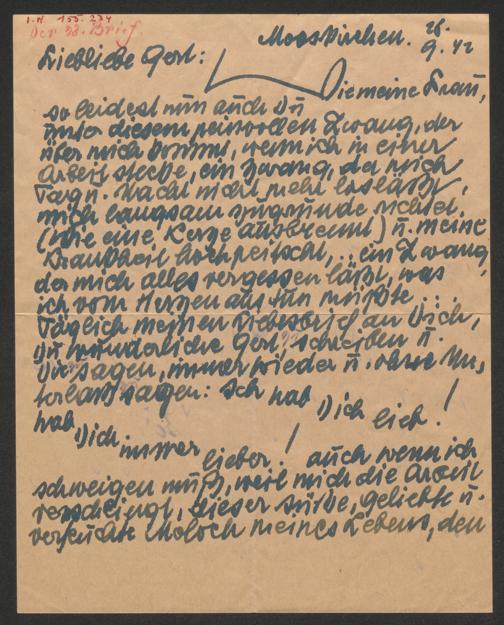 I.N. 155.274
Der 38. Brief.
Mooskirchen. 26.
9. 42
Liebliebe Gerl:
Die meine Frau,
so leidest nun auch Du
unter diesem peinvollen Zwang, der
über mich kommt, wenn ich in einer
Arbeit stecke, ein Zwang, der mich
Tag u. Nacht nicht mehr losläßt,
mich langsam zugrunde richtet
(wie eine Kerze ausbrennt) u. meine
Krankheit hochpeitscht, .. ein Zwang,
der mich alles vergessen läßt, was
ich vom Herzen aus tun müßte ...
Täglich meinen Liebesbrief an Dich,
Du wunderliche Gerl, schreiben u.
Dir sagen, immer wieder u. ohne Un,
terlaß sagen: Ich hab Dich lieb!
hab Dich immer lieber! auch wenn ich
schweigen muß, weil mich die Arbeit
verschlingt, dieser süße, geliebte u.
verfluchte Moloch meines Lebens, den